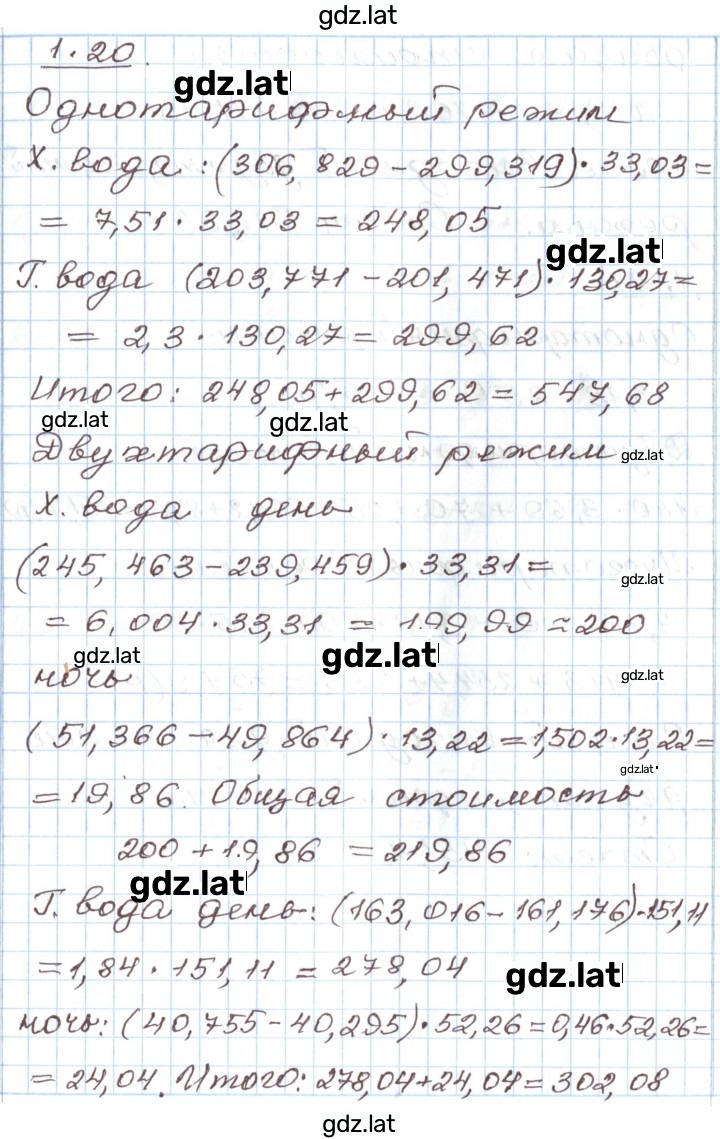 gdz.lat
1.20.
gdz.lat
Однотарифный режим
Х. вода: (306, 829 - 299, 319) · 33,03 =
= 7,51 · 33,03 = 248,05
gdz.lat
Г. вода (203,771 - 201, 471) · 130,27 =
= 2,3 · 130,27 = 299,62
Итого: 248,05 + 299,62 = 547,68
gdz.lat gdz.lat
Двухтарифный режим gdz.lat
Х. вода день
(245, 463 - 239,459) · 33,31 =
gdz.lat
= 6,004 · 33,31 = 199,99 ≈ 200
gdz.lat gdz.lat
ночь gdz.lat
(51,366 - 49,864) · 13,22 = 1,502 · 13,22 =
gdz.lat
= 19,86. Общая стоимость
200 + 19,86 = 219,86
gdz.lat
Г. вода день: (163,016 - 161,176) · 151,11
= 1,84 · 151,11 = 278,04
gdz.lat
ночь: (40,755 - 40,295) · 52,26 = 0,46 · 52,26 =
= 24,04. Итого: 278,04 + 24,04 = 302,08
gdz.lat